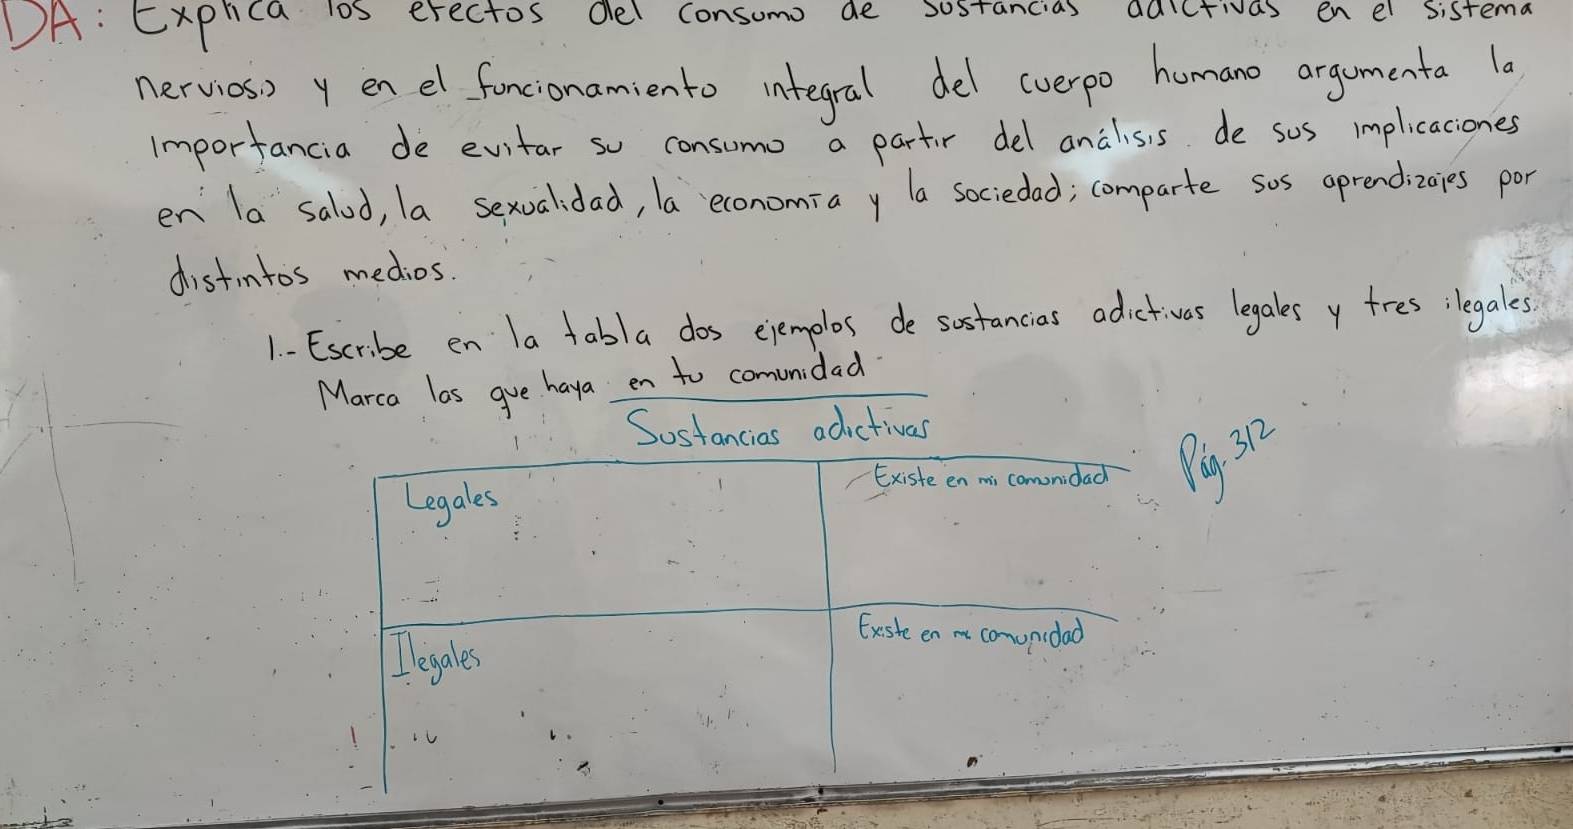 DA: Explica los efectos del consumo de sustancias adictivas en el sistema
nervioso y en el funcionamiento integral del cuerpo humano argumenta la
importancia de evitar su consumo a partir del análisis de sus implicaciones
en la salud, la sexualidad, la economía y la sociedad; comparte sus aprendizajes por
distintos medios.
1.- Escribe en la tabla dos ejemplos de sustancias adictivas legales y tres ilegales.
Marca las que haya en tu comunidad
Sustancias adictivas
Pág. 312
Legales
Existe en mi comunidad
Ilegales
Existe en mi comunidad